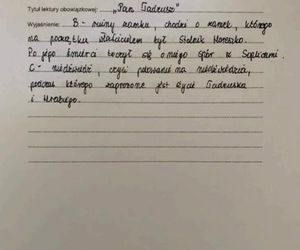 Tytuł lektury obowiązkowej: „Pan Tadeusz”
Wyjaśnienie: B - ruiny zamku, chodzi o zamek, którego
na początku właścicielem był Stolnik Horeszko.
Po jego śmierci toczył się o niego spór z Soplicami.
C - niedźwiedź, czyli polowanie na niedźwiedzia,
podczas którego zagrożone jest życie Tadeusza
i Hrabiego.